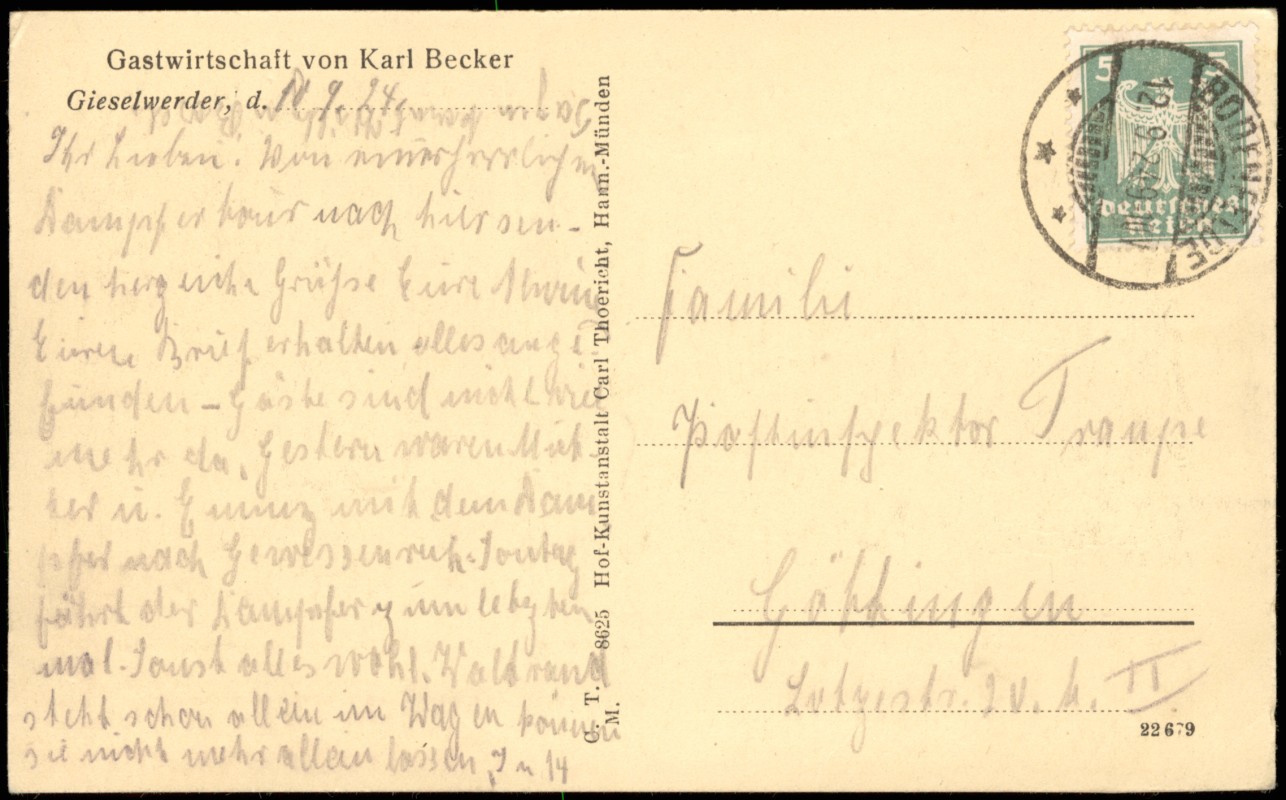 Gastwirtschaft von Karl Becker
Gieselwerder, d. 10. 9. 24
Ihr Lieben. Von einer herrlichen
Dampfertour nach hier sen-
den herzliche Grüße Eure
Euren Brief erhalten alles ange
funden – Gäste sind nicht viel
mehr da, Gestern waren
ter u. mit dem Dam
pfer nach Gewessenruh. Sontag
fährt der Dampfer zum letzten
mal. Sonst alles wohl. Waltraud
steht schon allein im Wagen können
sie nicht mehr allein lassen, In 14
G. T. M. 8625 Hof-Kunstanstalt Carl Thoericht, Hann.-Münden
5 5
Deutsches
Reich
BODENFELDE
12. 9.
Familie
Postinspektor Traupe
Göttingen
Lotzestr. 20. II
22679